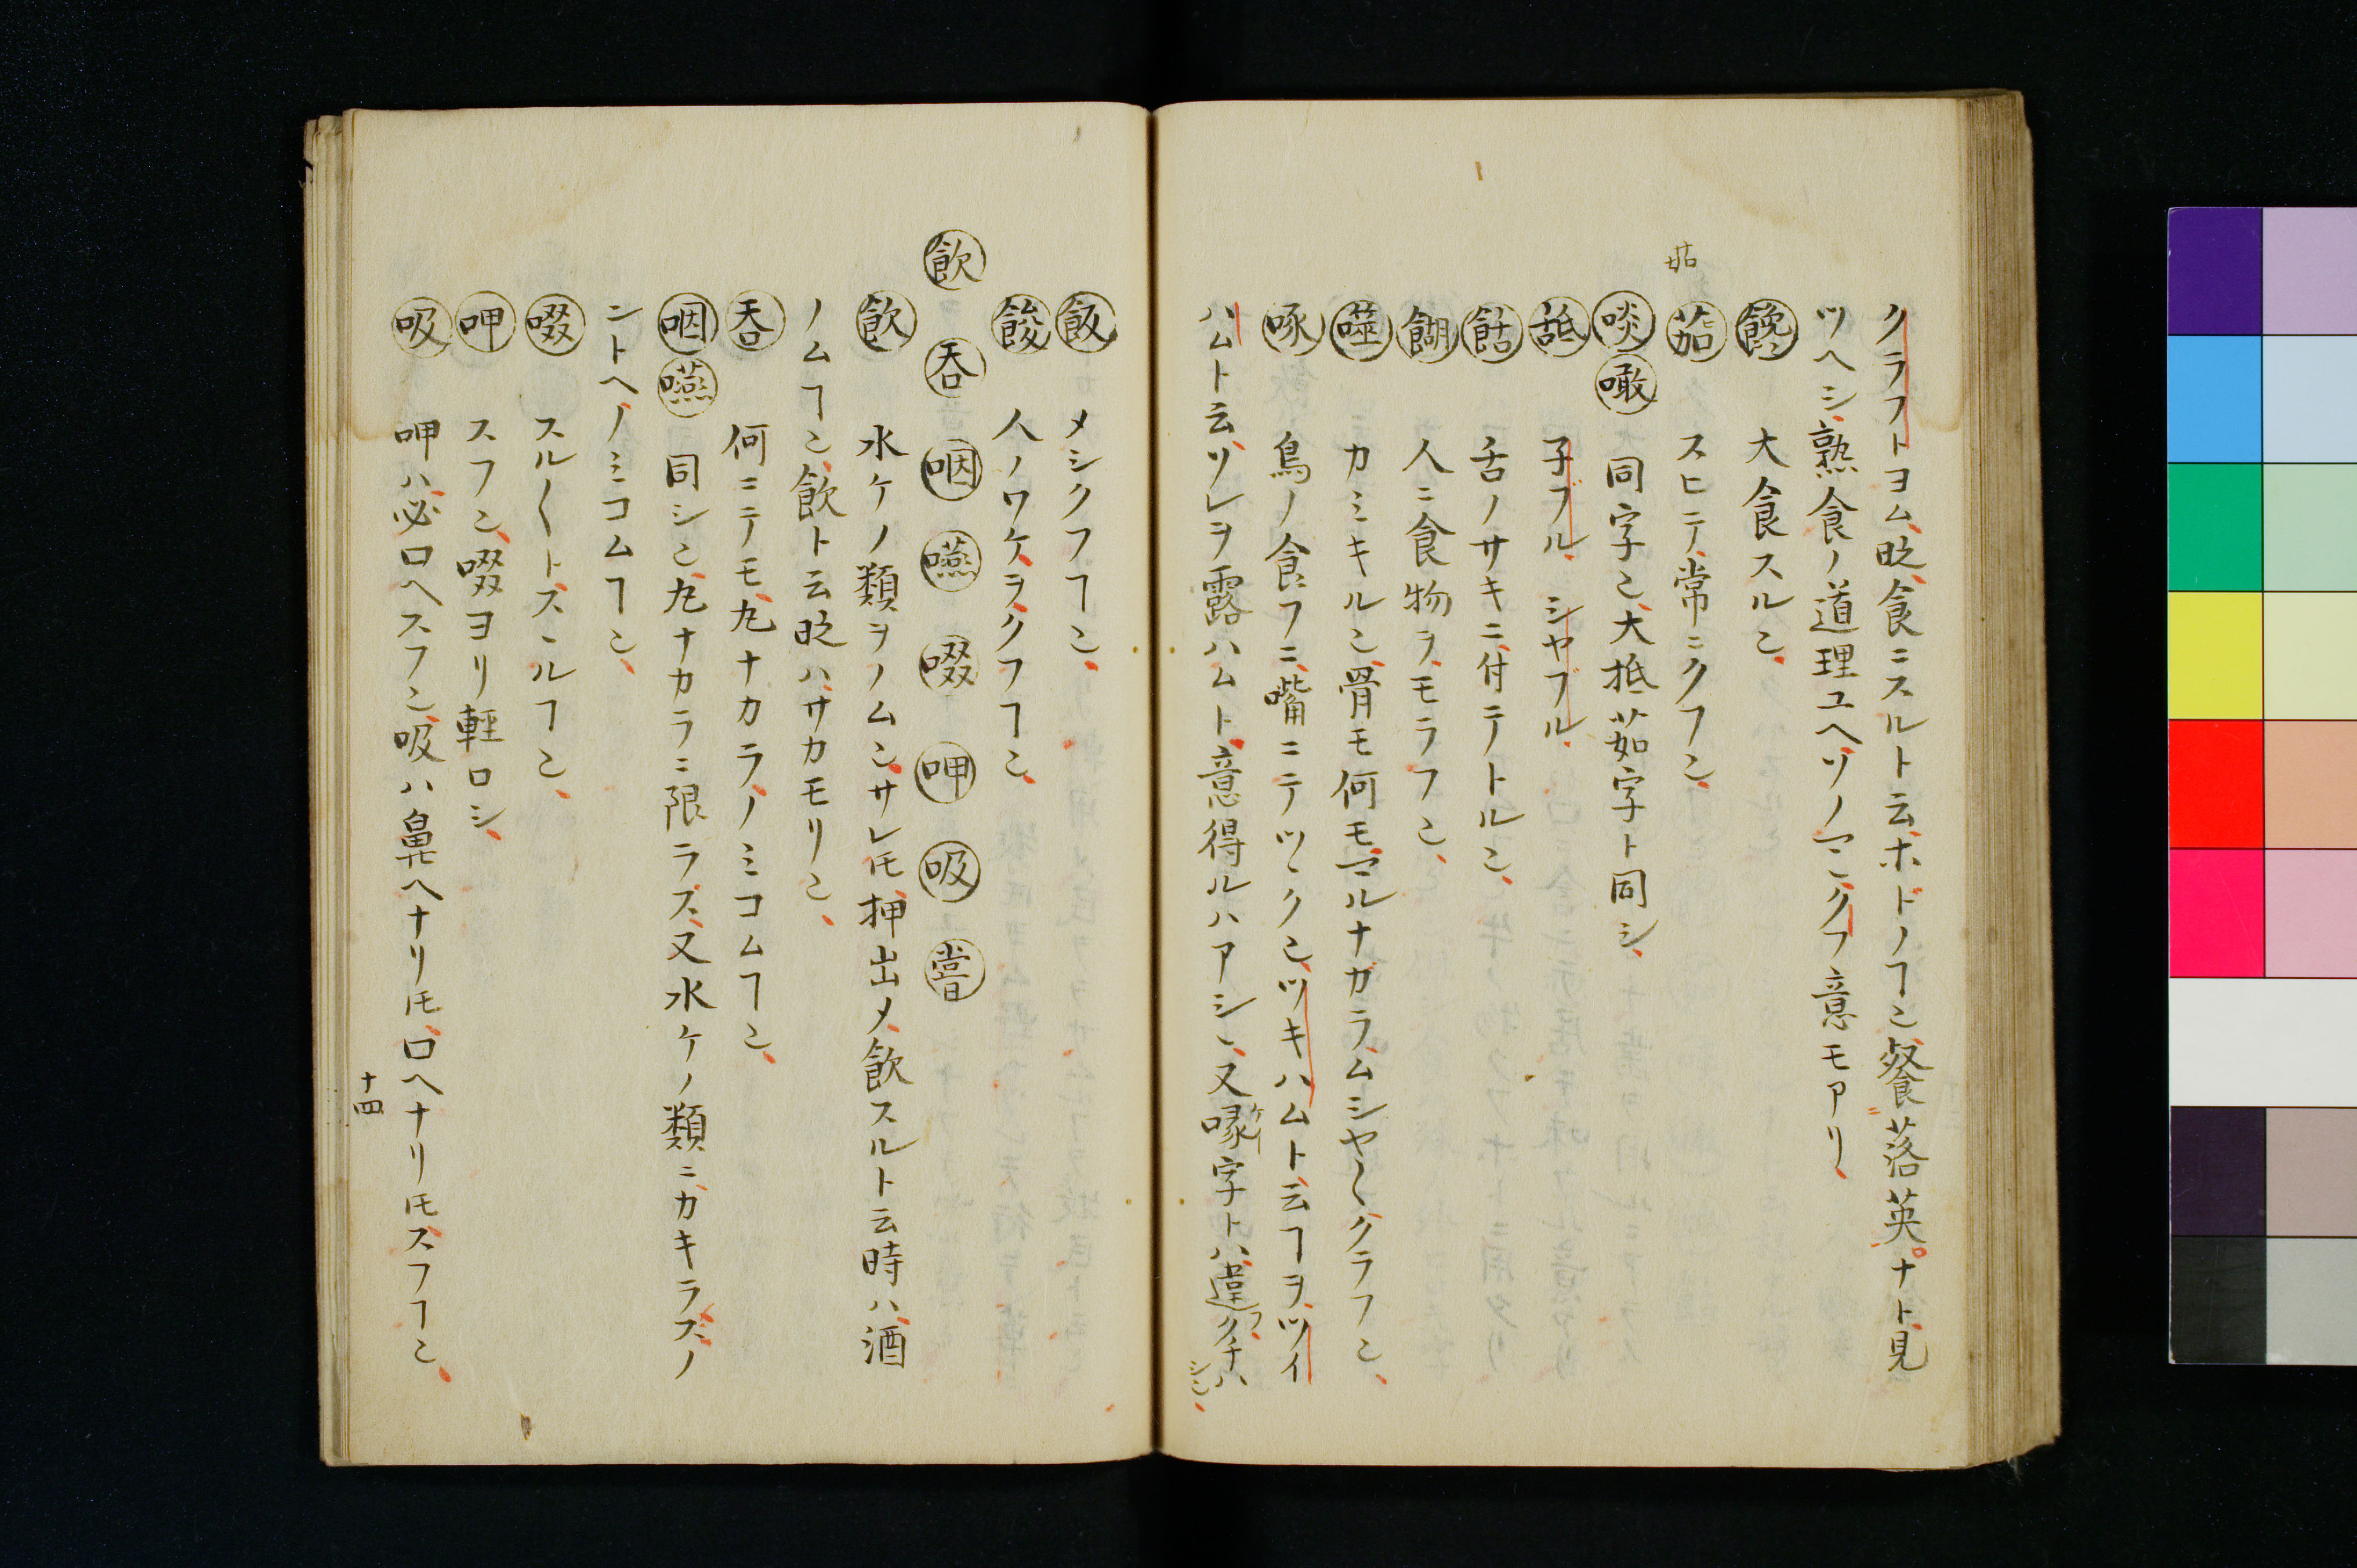 クラフトヨム、眨食ニスルト云ホドノヿ也、餐落英ナト見
ツヘシ、熟食ノ道理ユヘソノマヽクフ意モアリ、
茹
饞 大食スル也、
茹 スヒテ常ニクフ也、
啖 噉 同字也、大抵茹字ト同シ、
舐 子ブル、シヤブル、
餂 舌ノサキニ付テトル也、
餬 人ニ食物ヲモラフ也、
噬 カミキル也、骨モ何モマルナガラムシヤ〱クラフ也、
啄 鳥ノ食フニ嘴ニテツヽク也、ツキハムト云ヿヲ、ツイ
ハムト云、ソレヲ露ハムト意得ルハアシヽ、又喙字トハ違フ、クチハシ也、
飯 メシクフヿ也、
餕 人ノワケヲクフヿ也、
飲 呑 咽 嚥 啜 呷 吸 嘗
飲 水ケノ類ヲノム也、サレ𪜈押出メ飲スルト云時ハ酒
ノムヿ也、飲ト云眨ハサカモリ也、
呑 何ニテモ丸ナカラノミコムヿ也、
咽 嚥 同シ也、丸ナカラニ限ラズ、又水ケノ類ニカキラズ、ノ
ントヘノミコムヿ也、
啜 スル〱トスヽルヿ也、
呷 スフ也、啜ヨリ輕ロシ、
吸 呷ハ必口ヘスフ也、吸ハ鼻ヘナリ𪜈口ヘナリ𪜈スフヿ也、
十四